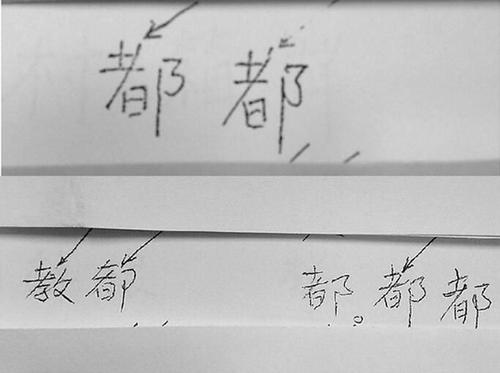 都 都
教 都 都。都 都